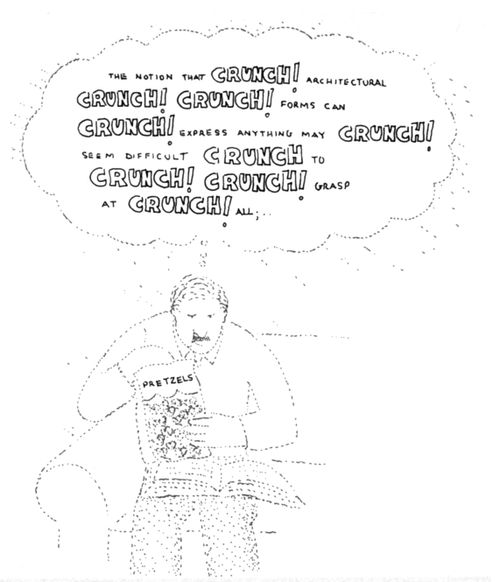 THE NOTION THAT CRUNCH! ARCHITECTURAL
CRUNCH! CRUNCH! FORMS CAN
CRUNCH! EXPRESS ANYTHING MAY CRUNCH!
SEEM DIFFICULT CRUNCH TO
CRUNCH! CRUNCH! GRASP
AT CRUNCH! ALL;..
PRETZELS